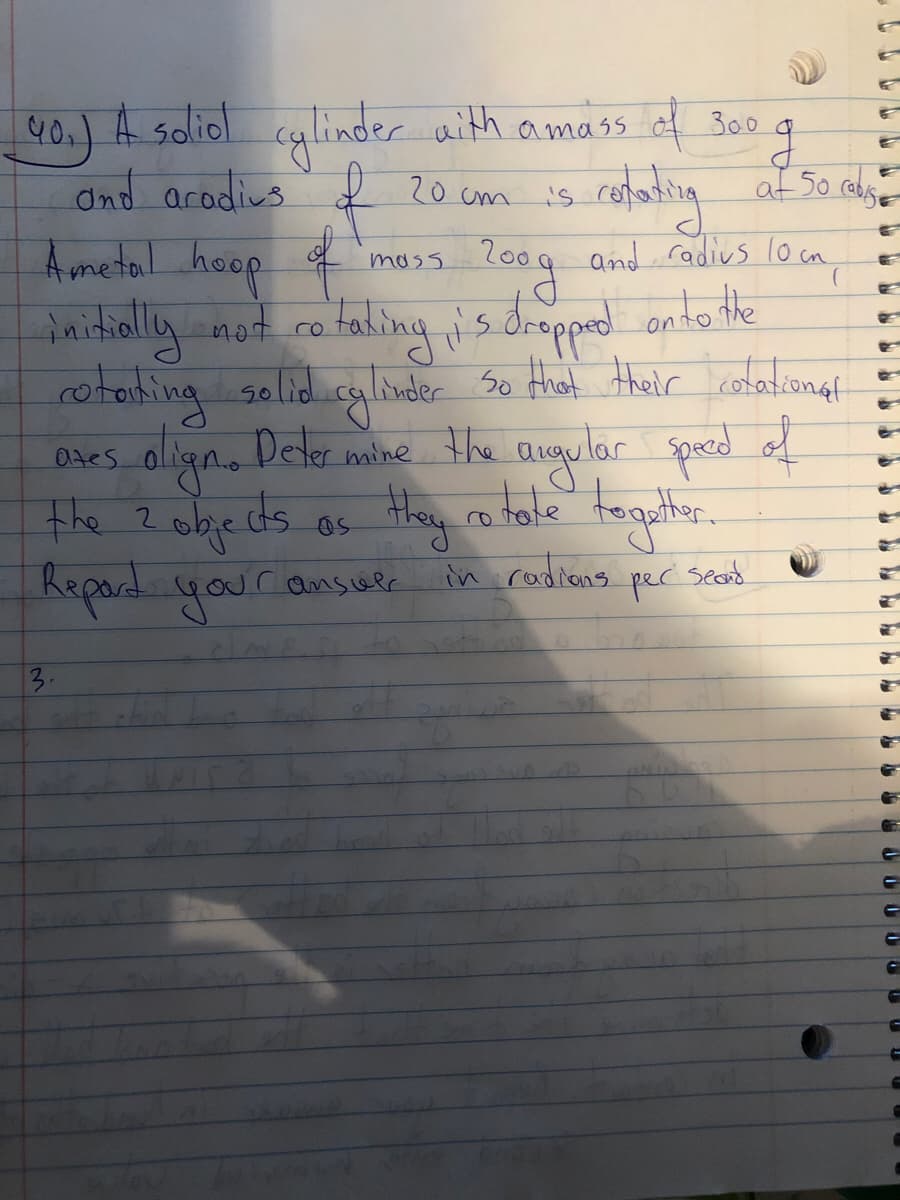 40.) A solid cylinder with a mass of 300 g
and a radius of 20 cm is rotating at 50 rad/s.
A metal hoop of mass 200g and radius 10 cm,
initially not rotating, is dropped onto the
rotating solid cylinder so that their rotational
axes align. Determine the angular speed of
the 2 objects as they rotate together.
Report your answer in radians per second
3.